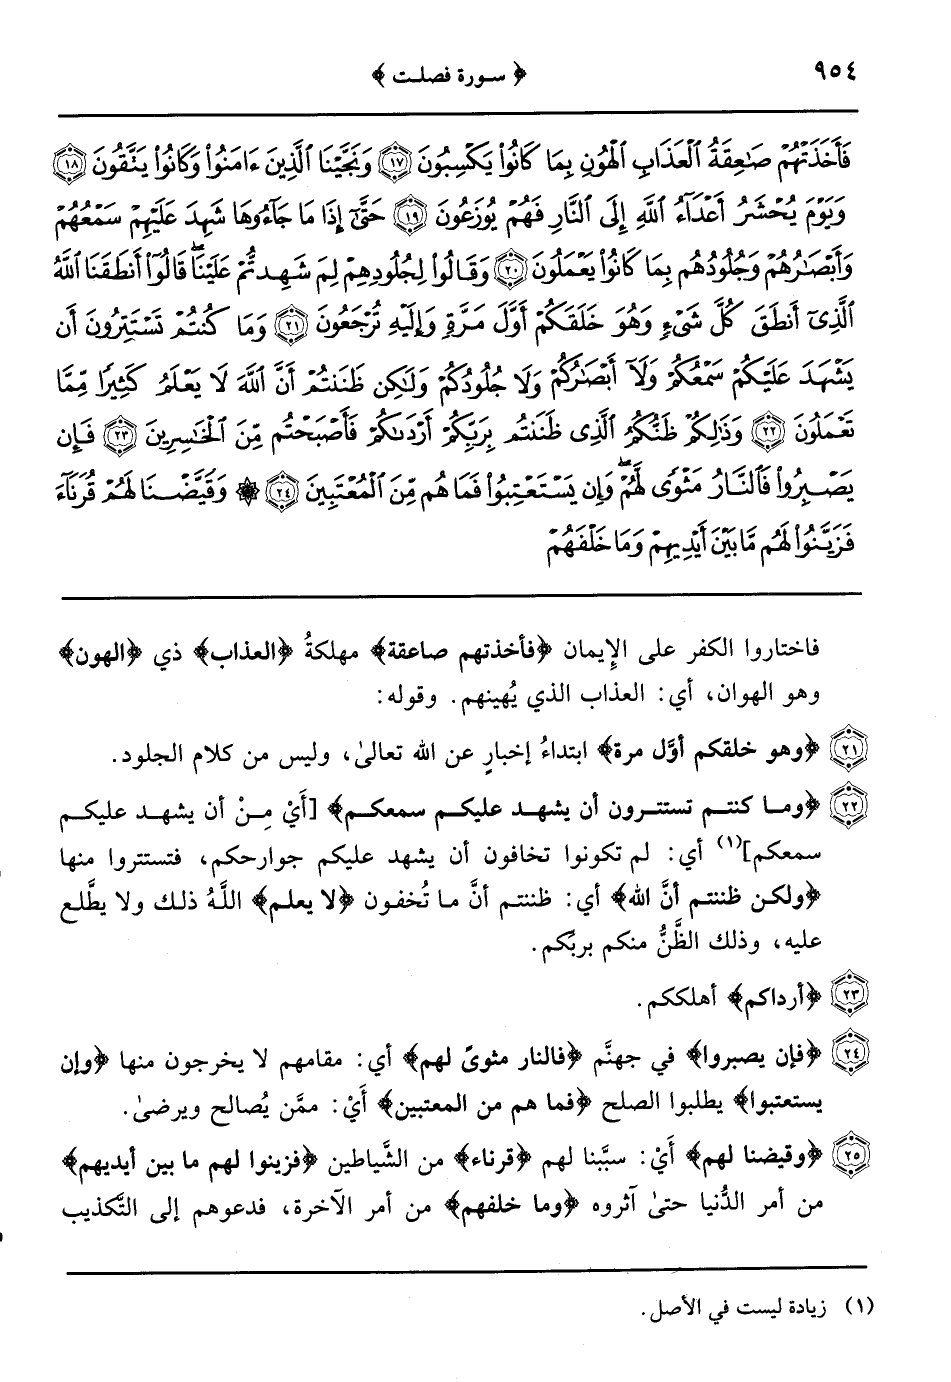 ٩٥٤
﴿ سورة فصلت ﴾
فَأَخَذَتْهُمْ صَٰعِقَةُ ٱلْعَذَابِ ٱلْهُونِ بِمَا كَانُوا۟ يَكْسِبُونَ ١٧ وَنَجَّيْنَا ٱلَّذِينَ ءَامَنُوا۟ وَكَانُوا۟ يَتَّقُونَ ١٨
وَيَوْمَ يُحْشَرُ أَعْدَآءُ ٱللَّهِ إِلَى ٱلنَّارِ فَهُمْ يُوزَعُونَ ١٩ حَتَّىٰٓ إِذَا مَا جَآءُوهَا شَهِدَ عَلَيْهِمْ سَمْعُهُمْ
وَأَبْصَٰرُهُمْ وَجُلُودُهُم بِمَا كَانُوا۟ يَعْمَلُونَ ٢٠ وَقَالُوا۟ لِجُلُودِهِمْ لِمَ شَهِدتُّمْ عَلَيْنَا ۖ قَالُوٓا۟ أَنطَقَنَا ٱللَّهُ
ٱلَّذِىٓ أَنطَقَ كُلَّ شَىْءٍ وَهُوَ خَلَقَكُمْ أَوَّلَ مَرَّةٍ وَإِلَيْهِ تُرْجَعُونَ ٢١ وَمَا كُنتُمْ تَسْتَتِرُونَ أَن
يَشْهَدَ عَلَيْكُمْ سَمْعُكُمْ وَلَآ أَبْصَٰرُكُمْ وَلَا جُلُودُكُمْ وَلَٰكِن ظَنَنتُمْ أَنَّ ٱللَّهَ لَا يَعْلَمُ كَثِيرًا مِّمَّا
تَعْمَلُونَ ٢٢ وَذَٰلِكُمْ ظَنُّكُمُ ٱلَّذِى ظَنَنتُم بِرَبِّكُمْ أَرْدَىٰكُمْ فَأَصْبَحْتُم مِّنَ ٱلْخَٰسِرِينَ ٢٣ فَإِن
يَصْبِرُوا۟ فَٱلنَّارُ مَثْوًى لَّهُمْ ۖ وَإِن يَسْتَعْتِبُوا۟ فَمَا هُم مِّنَ ٱلْمُعْتَبِينَ ٢٤ ۞ وَقَيَّضْنَا لَهُمْ قُرَنَآءَ
فَزَيَّنُوا۟ لَهُم مَّا بَيْنَ أَيْدِيهِمْ وَمَا خَلْفَهُمْ
فاختاروا الكفر على الإيمان ﴿فأخذتهم صاعقة﴾ مهلكةُ ﴿العذاب﴾ ذي ﴿الهون﴾
وهو الهوان، أي: العذاب الذي يُهينهم. وقوله:
٢١ ﴿وهو خلقكم أوَّل مرة﴾ ابتداءُ إخبارٍ عن الله تعالىٰ، وليس من كلام الجلود.
٢٢ ﴿وما كنتم تستترون أن يشهد عليكم سمعكم﴾ [أَيْ مِنْ أن يشهد عليكم
سمعكم](١) أي: لم تكونوا تخافون أن يشهد عليكم جوارحكم، فتستتروا منها
﴿ولكن ظننتم أنَّ الله﴾ أي: ظننتم أنَّ ما تُخفون ﴿لا يعلم﴾ اللَّهُ ذلك ولا يطَّلع
عليه، وذلك الظَّنُّ منكم بربِّكم.
٢٣ ﴿أرداكم﴾ أهلككم.
٢٤ ﴿فإن يصبروا﴾ في جهنَّم ﴿فالنار مثوىً لهم﴾ أي: مقامهم لا يخرجون منها ﴿وإن
يستعتبوا﴾ يطلبوا الصلح ﴿فما هم من المعتبين﴾ أَيْ: ممَّن يُصالح ويرضىٰ.
٢٥ ﴿وقيضنا لهم﴾ أَيْ: سبَّبنا لهم ﴿قرناء﴾ من الشَّياطين ﴿فزينوا لهم ما بين أيديهم﴾
من أمر الدُّنيا حتىٰ آثروه ﴿وما خلفهم﴾ من أمر الآخرة، فدعوهم إلى التَّكذيب
(١) زيادة ليست في الأصل.